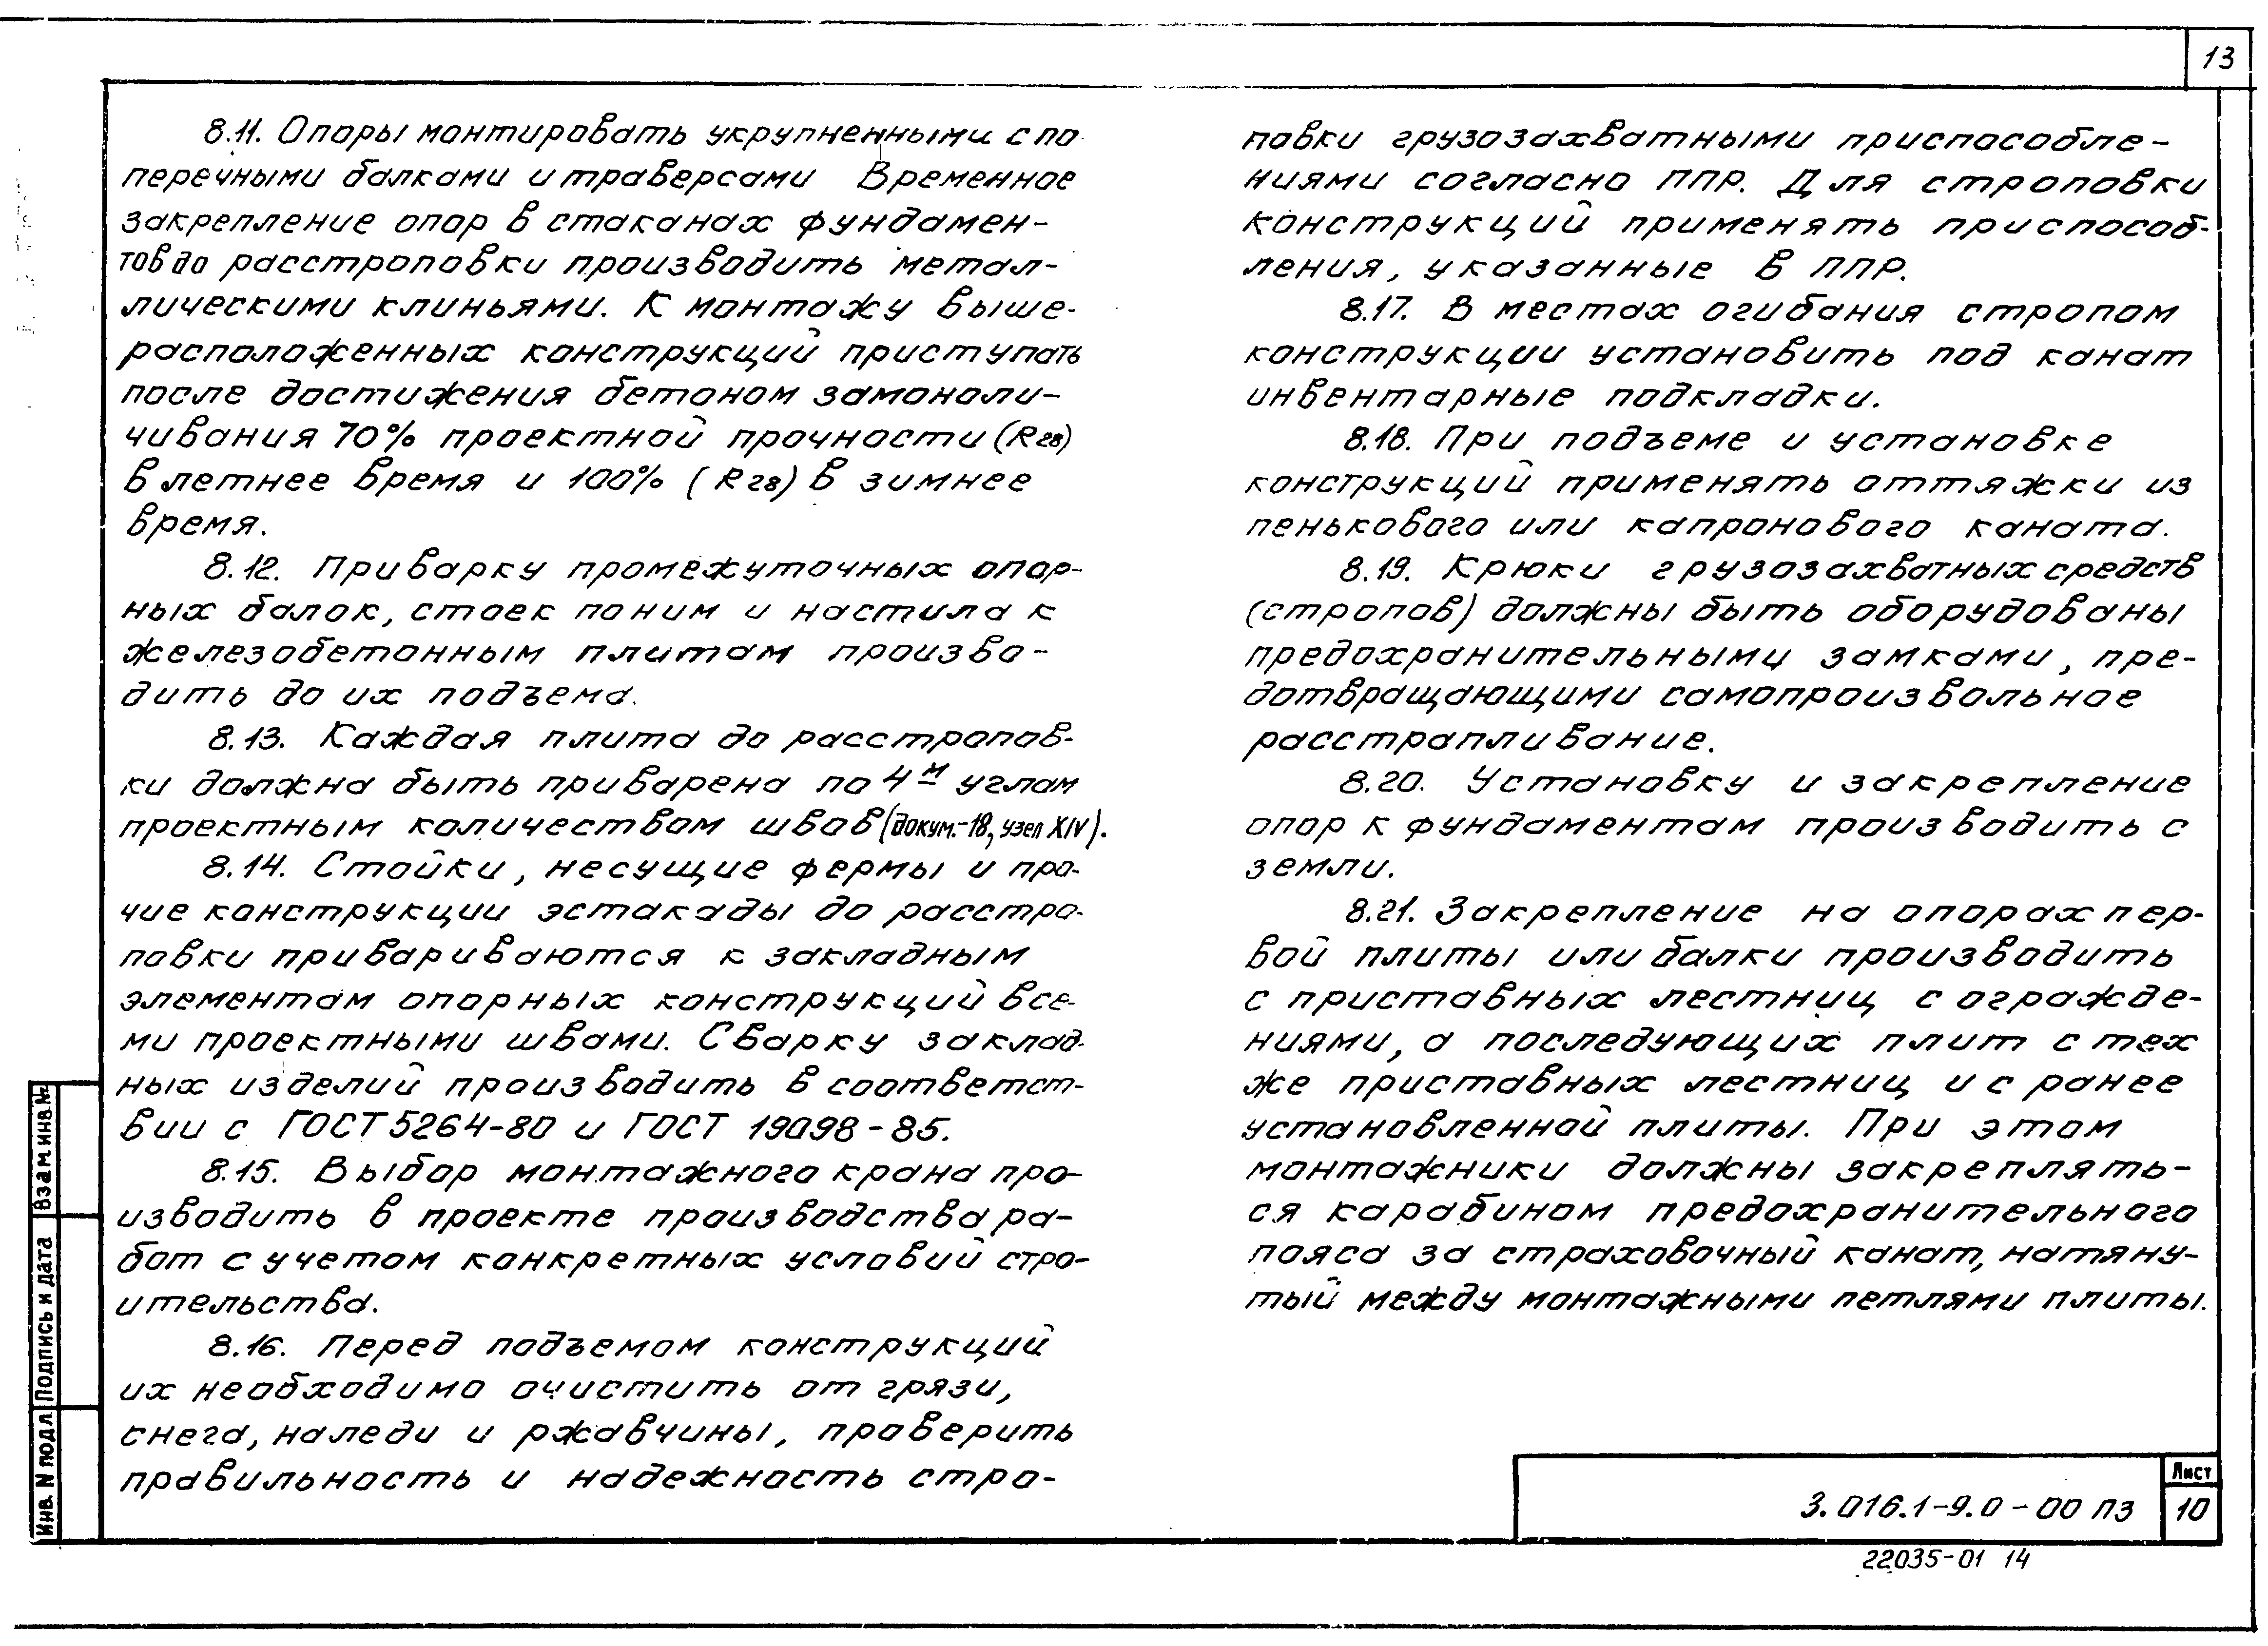 13
8.11. Опоры монтировать укрупненными с по-
перечными балками и траверсами Временное
закрепление опор в стаканах фундамен-
тов до расстроповки производить метал-
лическими клиньями. К монтажу выше-
расположенных конструкций приступать
после достижения бетоном замоноли-
чивания 70% проектной прочности (R28)
в летнее время и 100% (R28) в зимнее
время.
8.12. Приварку промежуточных опор-
ных балок, стоек по ним и настила к
железобетонным плитам произво-
дить до их подъема.
8.13. Каждая плита до расстропов-
ки должна быть приварена по 4м углам
проектным количеством швов (докум.-18, узел XIV).
8.14. Стойки, несущие фермы и про-
чие конструкции эстакады до расстро-
повки привариваются к закладным
элементам опорных конструкций все-
ми проектными швами. Сварку заклад-
ных изделий производить в соответст-
вии с ГОСТ 5264-80 и ГОСТ 19098-85.
8.15. Выбор монтажного крана про-
изводить в проекте производства ра-
бот с учетом конкретных условий стро-
ительства.
8.16. Перед подъемом конструкций
их необходимо очистить от грязи,
снега, наледи и ржавчины, проверить
правильность и надежность стро-
повки грузозахватными приспособле-
ниями согласно ППР. Для строповки
конструкций применять приспособ-
ления, указанные в ППР.
8.17. В местах огибания стропом
конструкции установить под канат
инвентарные подкладки.
8.18. При подъеме и установке
конструкций применять оттяжки из
пенькового или капронового каната.
8.19. Крюки грузозахватных средств
(стропов) должны быть оборудованы
предохранительными замками, пре-
дотвращающими самопроизвольное
расстрапливание.
8.20. Установку и закрепление
опор к фундаментам производить с
земли.
8.21. Закрепление на опорах пер-
вой плиты или балки производить
с приставных лестниц с огражде-
ниями, а последующих плит с тех
же приставных лестниц и с ранее
установленной плиты. При этом
монтажники должны закреплять-
ся карабином предохранительного
пояса за страховочный канат, натяну-
тый между монтажными петлями плиты.
Инв. N подл
Подпись и дата
Взам. инв. №
3.016.1-9.0-00 ПЗ
Лист
10
22035-01 14